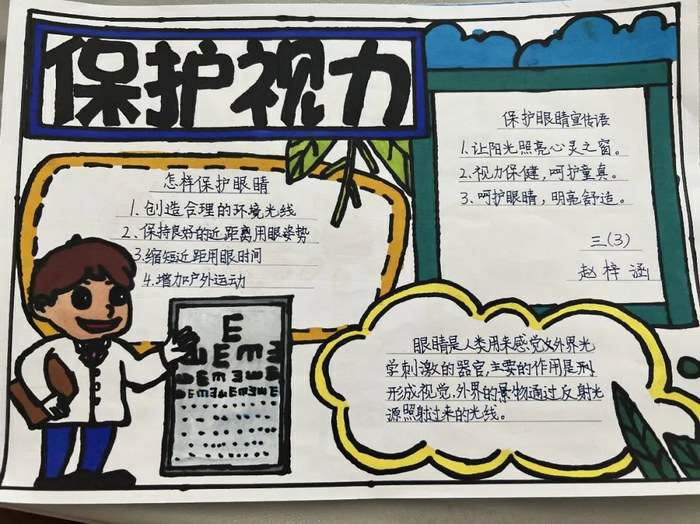 保护视力
怎样保护眼睛
1.创造合理的环境光线
2.保持良好的近距离用眼姿势
3.缩短近距用眼时间
4.增加户外运动
E
E E m
保护眼睛宣传语
1.让阳光照亮心灵之窗。
2.视力保健,呵护童真。
3.呵护眼睛,明亮舒适。
三(3)
赵梓涵
眼睛是人类用来感觉外界光
学刺激的器官,主要的作用是
形成视觉,外界的景物通过反射光
源照射过来的光线。